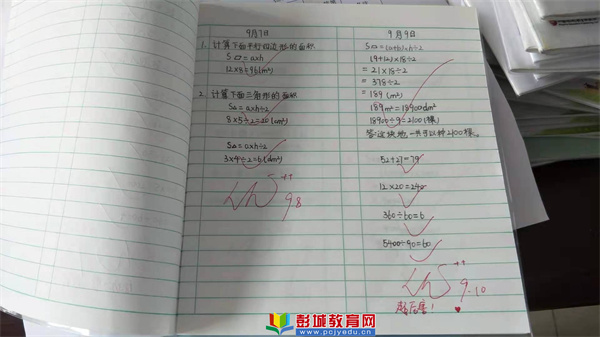 9月7日
1. 计算下面平行四边形的面积
S▱=a×h
12×8=96(m²)
2. 计算下面三角形的面积
S△=a×h÷2
8×5÷2=20(cm²)
S△=a×h÷2
3×4÷2=6(dm²)
9.8
9月9日
S▱=(a+b)×h÷2
(9+12)×18÷2
=21×18÷2
=378÷2
=189(m²)
189m²=18900dm²
18900÷9=2100(棵)
答:这块地一共可以种2100棵。
52+27=79
12×20=240
360÷60=6
5400÷90=60
9.10
彭城教育网
www.pcjyedu.cn